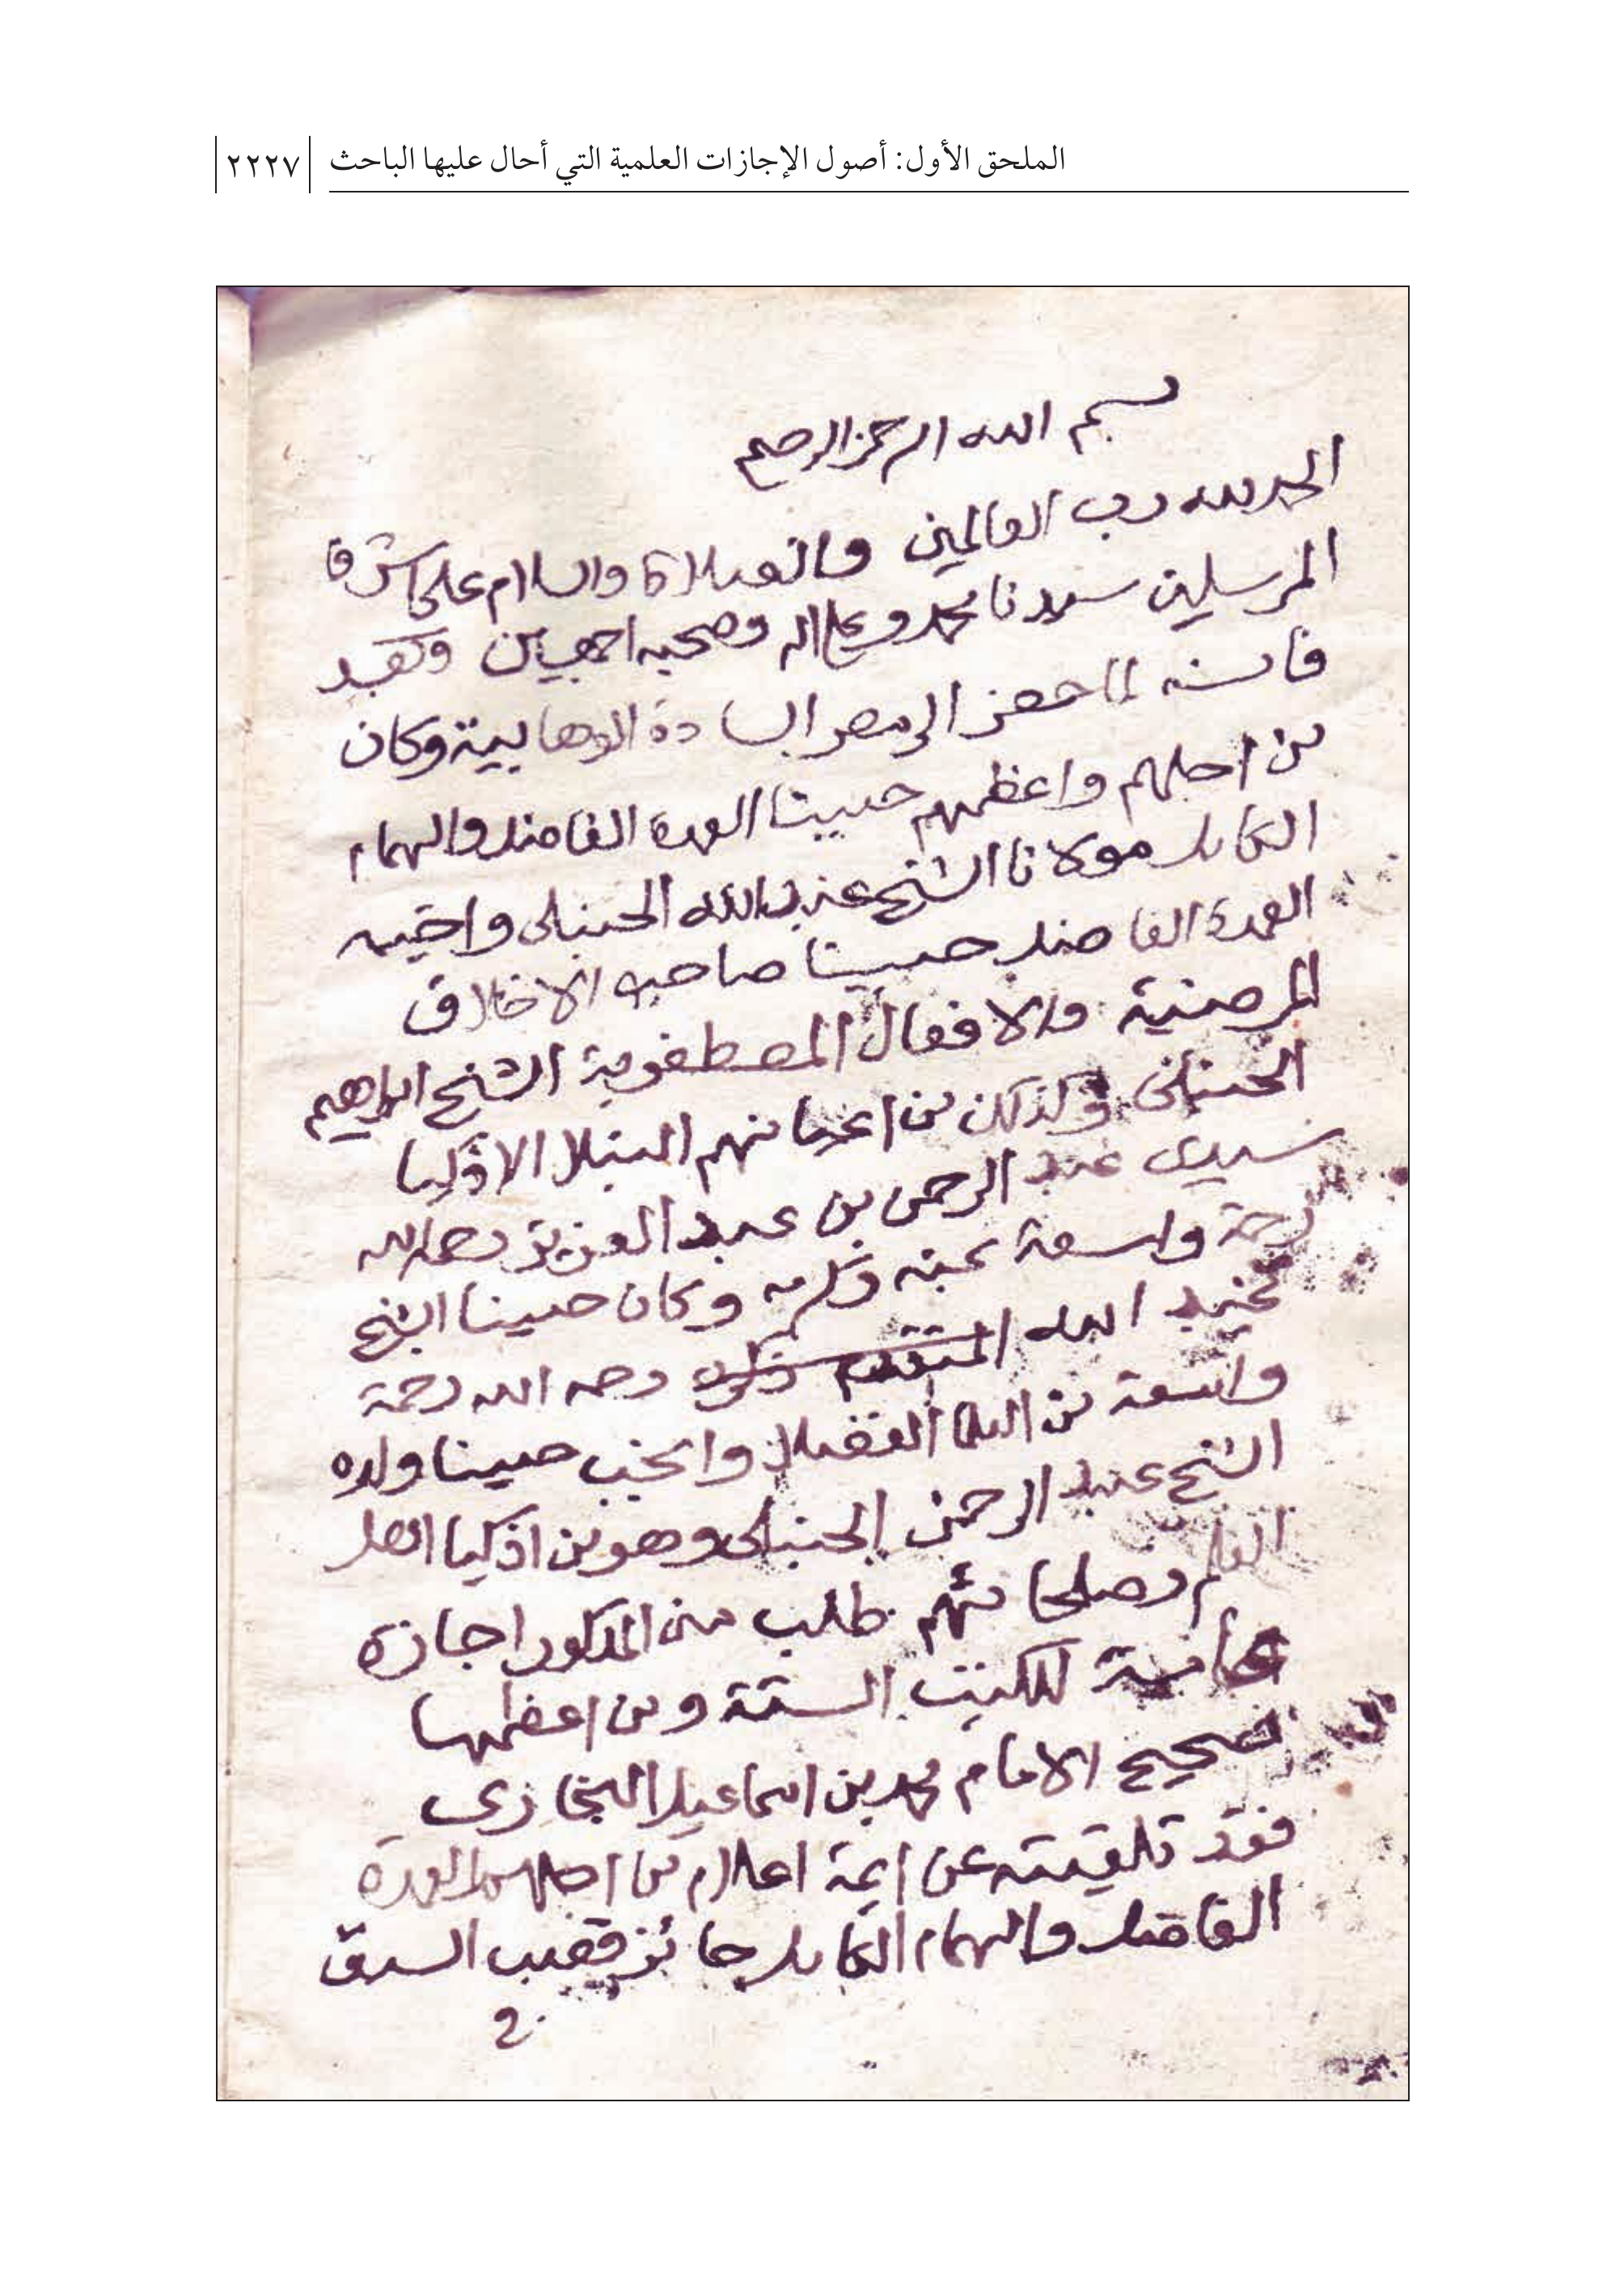 الملحق الأول: أصول الإجازات العلمية التي أحال عليها الباحث ٢٢٢٧
بسم الله الرحمن الرحيم
الحمد لله رب العالمين والصلاة والسلام على اشرف
المرسلين سيدنا محمد وعلى اله وصحبه اجمعين وبعد
فانه لما حضر الى مصر السادة الوهابية وكان
من اجلهم واعظمهم حبيبنا العمدة الفاضل والهمام
الكامل مولانا الشيخ عبد الله الحنبلى واخيه
العمدة الفاضل حبيبنا صاحب الاخلاق
المرضية والافعال المصطفوية الشيخ ابراهيم
الحنبلى وكذلك من اعيانهم النبلا الاذكيا
سيدى عبد الرحمن بن عبد العزيز رحمه الله
رحمة واسعة بمنه وكرمه وكان حبيبنا الشيخ
عبد الله المتقدم ذكره رحمه الله رحمة
واسعة من العلما الفضلا وانجب حبيبنا ولده
الشيخ عبد الرحمن الحنبلى وهو من اذكيا اهل
العلم وصلحائهم طلب من المذكور اجازة
عامة للكتب الستة ومن اعظمها
صحيح الامام محمد بن اسماعيل البخارى
فقد تلقيته عن ايمة اعلام من اجلهم العمدة
الفاضل والهمام الكامل حائز قصب السبق